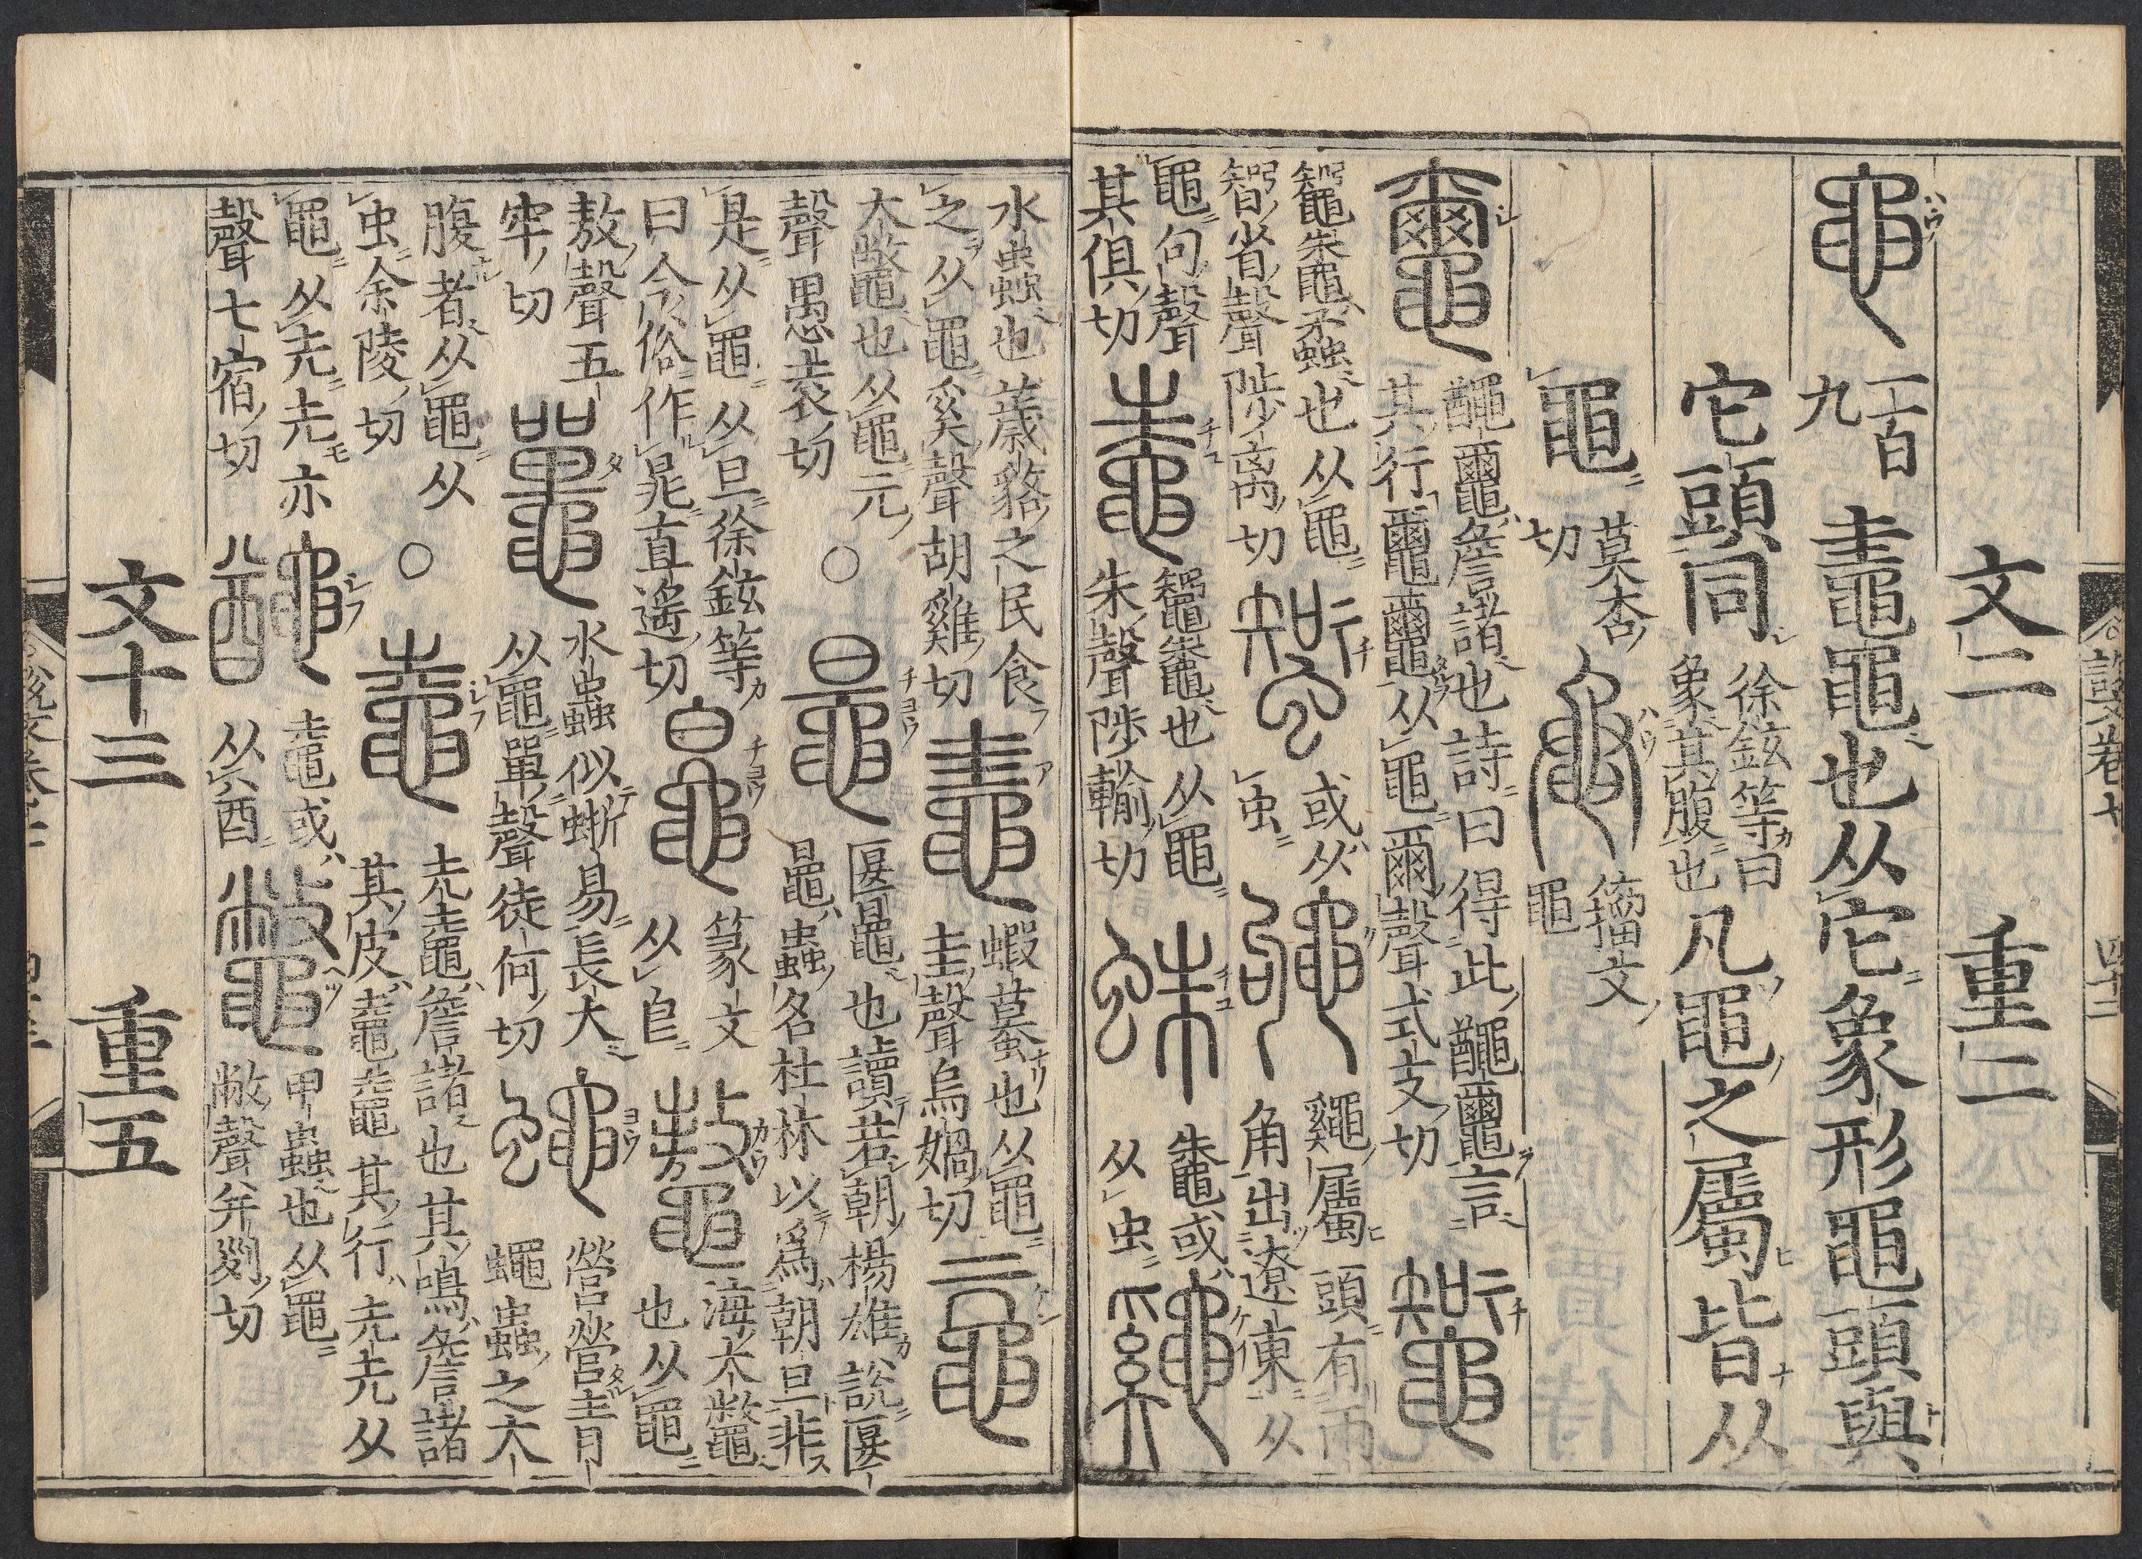 文二 重二
黽 一百九 鼃黽也从它象形黽頭與
它頭同 徐鉉等曰
象其腹也 凡黽之屬皆从
黽 莫杏切 黽 籀文黽
𪓰 𪓿𪓰詹諸也詩曰得此𪓿𪓰言
其行𪓰𪓰从黽爾聲式支切 鼅
鼅鼄蟊也从黽
智省聲陟离切 𧑏 或从
虫 鼩 鼊屬頭有兩
角出遼東从
黽句聲
其俱切 鼄 鼅鼄也从黽
朱聲陟輸切 蛛 鼄或
从虫 鼷
水蟲也薉貉之民食
之从黽奚聲胡雞切 鼃 蝦蟇也从黽
圭聲烏媧切 黿
大鼈也从黽元
聲愚袁切 ○ 鼂 匽鼂也讀若朝楊雄説匽
鼂蟲名杜林以爲朝旦非
是从黽从旦徐鉉等
曰今俗作晁直遥切 篆文
从皀 鼇 海大鼈
也从黽
敖聲五
牢切 鼉 水蟲似蜥易長大
从黽單聲徒何切 蠅 營營青
蠅蟲之大
腹者从黽从
虫余陵切 ○ 鼀 圥鼀詹諸也其鳴詹諸
其皮鼀鼀其行圥圥从
黽从圥圥亦
聲七宿切 鼀或
从酋 鼈 甲蟲也从黽
敝聲并列切
文十三 重五